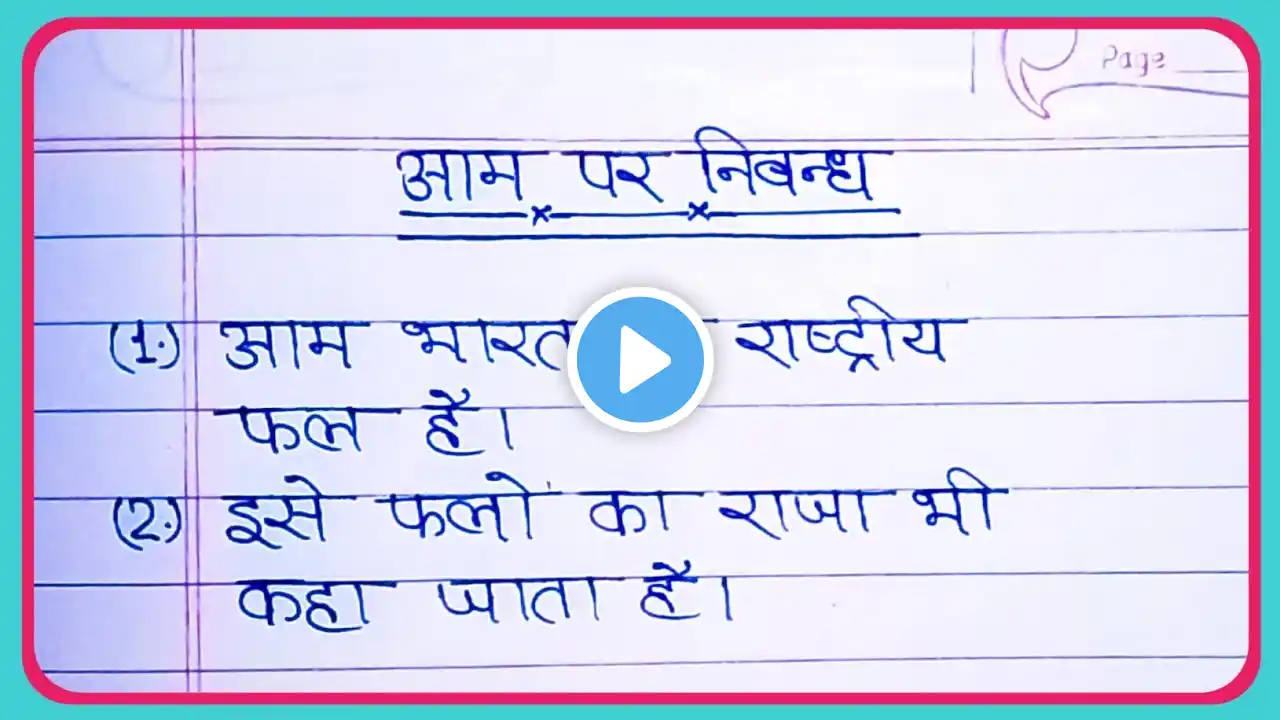 Page
आम पर निबन्ध
(1.) आम भारत राष्ट्रीय
फल है।
(2.) इसे फलों का राजा भी
कहा जाता है।